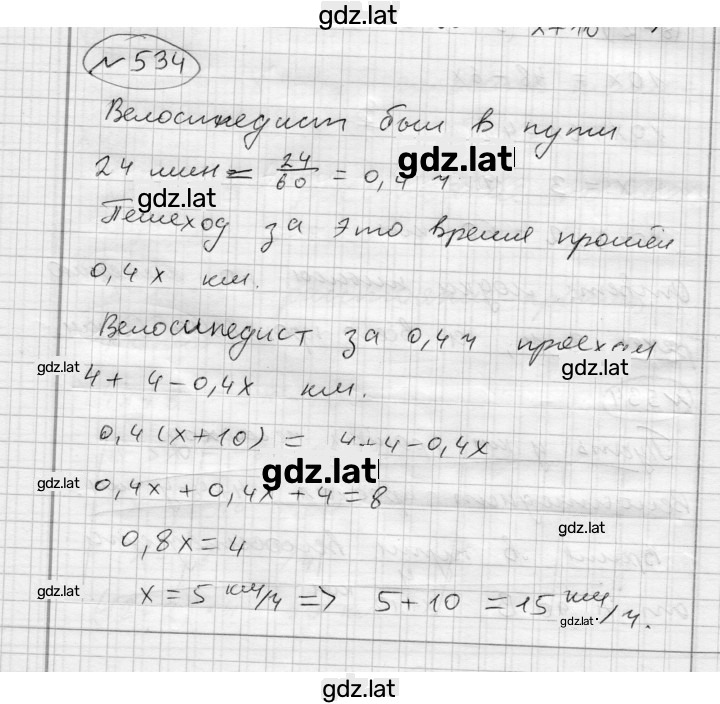 gdz.lat
x+10
№534
Велосипедист был в пути
24 мин = 24/60 = 0,4 ч
gdz.lat
gdz.lat
Пешеход за это время прошёл
0,4x км.
Велосипедист за 0,4ч проехал
gdz.lat
gdz.lat
4 + 4 - 0,4x км.
0,4(x+10) = 4+4-0,4x
gdz.lat
gdz.lat
0,4x + 0,4x + 4 = 8
gdz.lat
0,8x = 4
gdz.lat
x = 5 км/ч => 5+10 = 15 км/ч.
gdz.lat
gdz.lat